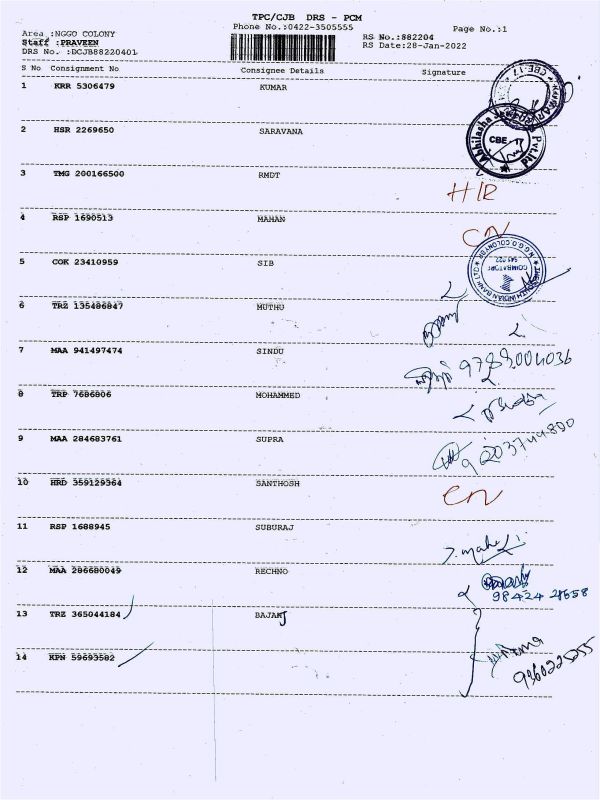 TPC/CJB DRS - PCM
Phone No.:0422-3505555
Page No.:1
Area :NGGO COLONY
Staff :PRAVEEN
DRS No. :DCJB88220401
RS No.:882204
RS Date:28-Jan-2022
S No Consignment No Consignee Details Signature
1 KRR 5306479 KUMAR
2 HSR 2269650 SARAVANA
CBE
3 TMG 200166500 RMDT
4 RSP 1690513 MAHAN
CN
5 COK 23410959 SIB
COIMBATORE
6 TRZ 135486847 MUTHU
7 MAA 941497474 SINDU
8 TRP 7686806 MOHAMMED
9 MAA 284683761 SUPRA
10 HRD 359129364 SANTHOSH
CN
11 RSP 1688945 SUBURAJ
12 MAA 286680049 RECHNO
13 TRZ 365044184 BAJAJ
14 KPN 59693582
9360225255